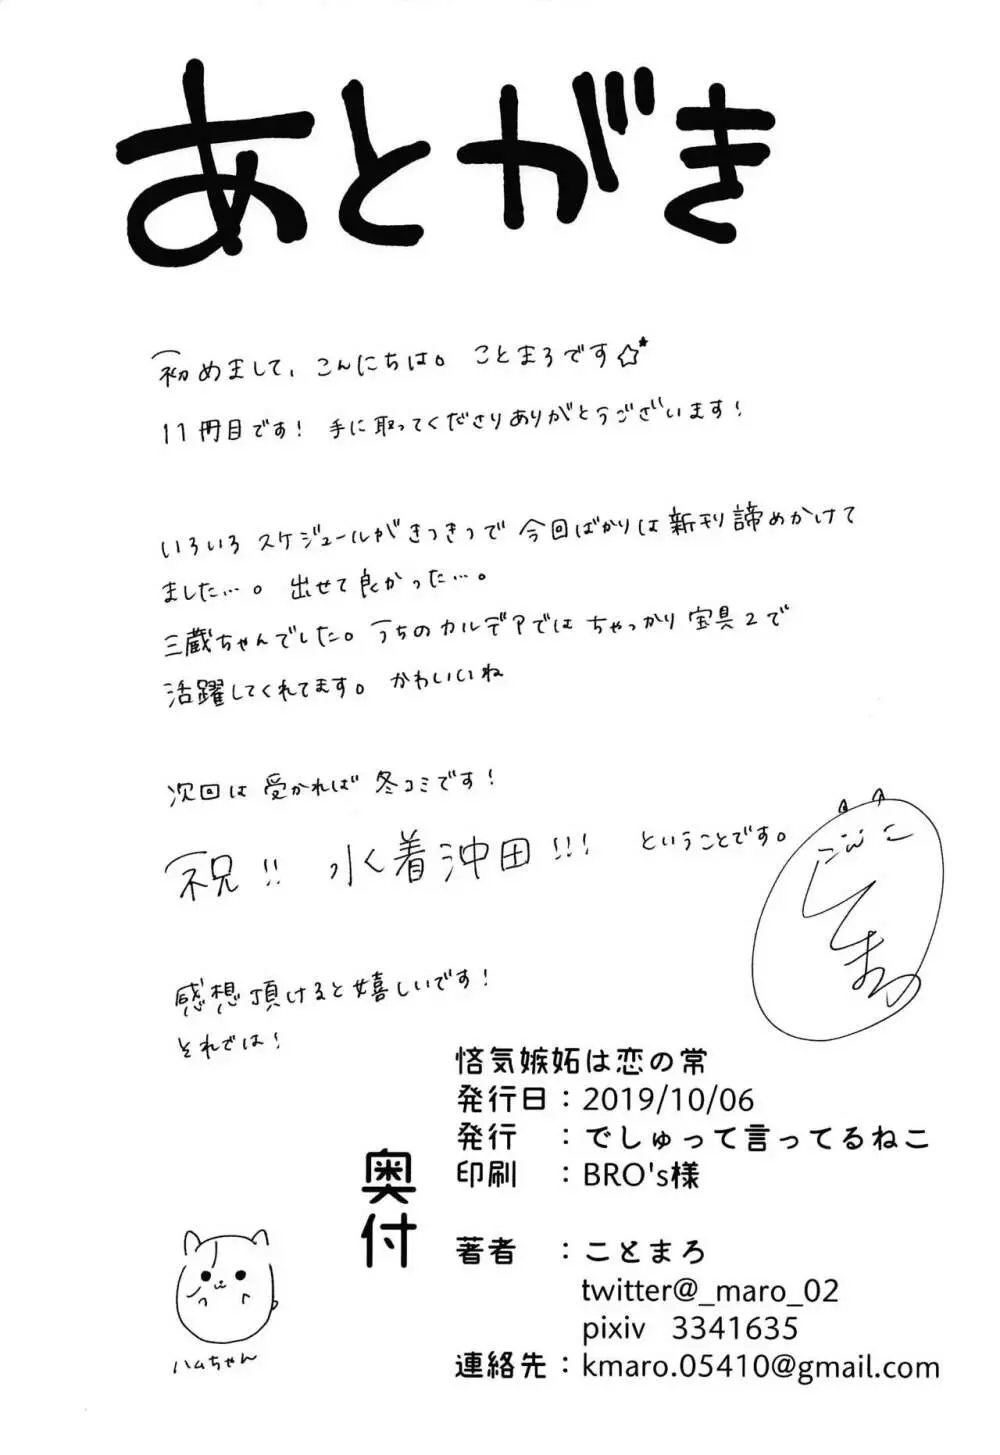 あとがき
初めまして、こんにちは。ことまろです☆★
11冊目です！ 手に取ってくださりありがとうございます！
いろいろスケジュールがきつきつで今回ばかりは新刊諦めかけて
ました…。出せて良かった…。
三蔵ちゃんでした。うちのカルデアではちゃっかり宝具2で
活躍してくれてます。かわいいね
次回は受かれば冬コミです！
祝!! 水着沖田!!! ということです。
感想頂けると嬉しいです！
それでは！
ことまろ
ハムちゃん
奥付
悋気嫉妬は恋の常
発行日：2019/10/06
発行　：でしゅって言ってるねこ
印刷　：BRO's様
著者　：ことまろ
twitter@_maro_02
pixiv 3341635
連絡先：kmaro.05410@gmail.com